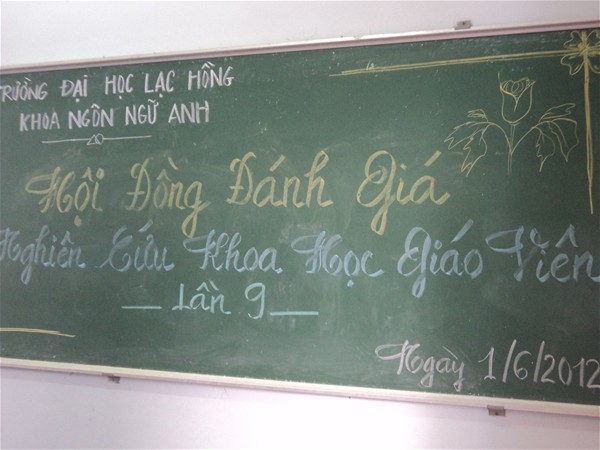 TRƯỜNG ĐẠI HỌC LẠC HỒNG
KHOA NGÔN NGỮ ANH
Hội Đồng Đánh Giá
Nghiên Cứu Khoa Học Giáo Viên
Lần 9
Ngày 1/6/2012